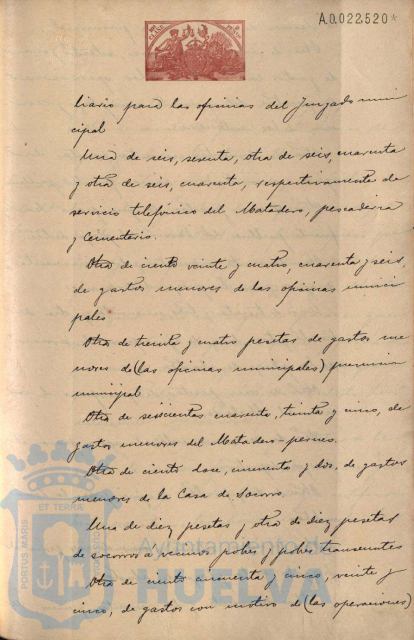 A.0.022.520*
liario para las oficinas del Juzgado muni
cipal
Una de seis, sesenta, otra de seis, cuarenta
y otra de seis, cuarenta, respectivamente de
servicio telefónico del Matadero, pescadería
y Cementerio.
Otra de ciento veinte y cuatro, cuarenta y seis,
de gastos menores de las oficinas munici
pales
Otra de treinta y cuatro pesetas de gastos me
nores de (las oficinas municipales)
municipal
Otra de seiscientas cuarenta, treinta y cinco, de
gastos menores del Matadero
Otra de ciento doce, cincuenta y dos, de gastos
menores de la Casa de Socorro
Una de diez pesetas y otra de diez pesetas
de socorros a vecinos pobres y pobres transeuntes
Otra de ciento cincuenta y cinco, veinte y
cinco, de gastos con motivo de (las operaciones)
PORTUS MARIS
ET TERRÆ
Ayuntamiento de
HUELVA